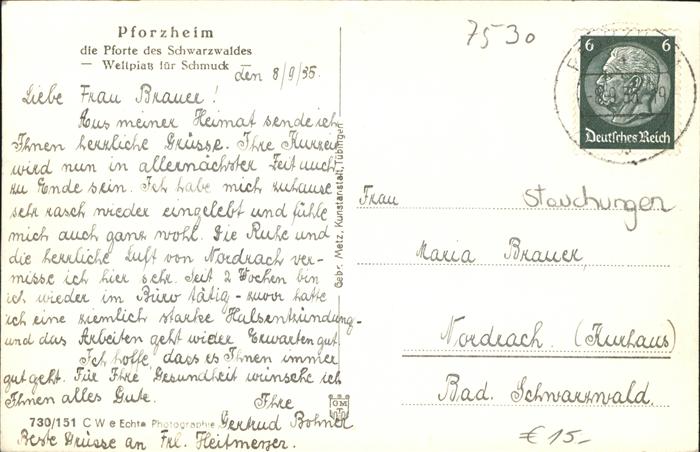 Pforzheim
die Pforte des Schwarzwaldes
— Weltplatz für Schmuck
den 8/9/35.
Liebe Frau Brauer!
Aus meiner Heimat sende ich
Ihnen herzliche Grüsse. Ihre Kurzeit
wird nun in allernächster Zeit auch
zu Ende sein. Ich habe mich zuhause
sehr rasch wieder eingelebt und fühle
mich auch ganz wohl. Die Ruhe und
die herrliche Luft von Nordrach ver-
misse ich hier sehr. Seit 2 Wochen bin
ich wieder im Büro tätig - zuvor hatte
ich eine ziemlich starke Halsentzündung-
und das Arbeiten geht wider Erwarten gut.
Ich hoffe, dass es Ihnen immer
gut geht. Für Ihre Gesundheit wünsche ich
Ihnen alles Gute.
Ihre
Gertrud Bohner
730/151 C W e Echte Photographie
Beste Grüsse an Frl. Heitmeyer.
Gebr. Metz, Kunstanstalt, Tübingen
GM
T
7530
6 6
Deutsches Reich
Frau
Stauchungen
Maria Brauer,
Nordrach. (Kurhaus)
Bad. Schwarzwald.
€ 15-